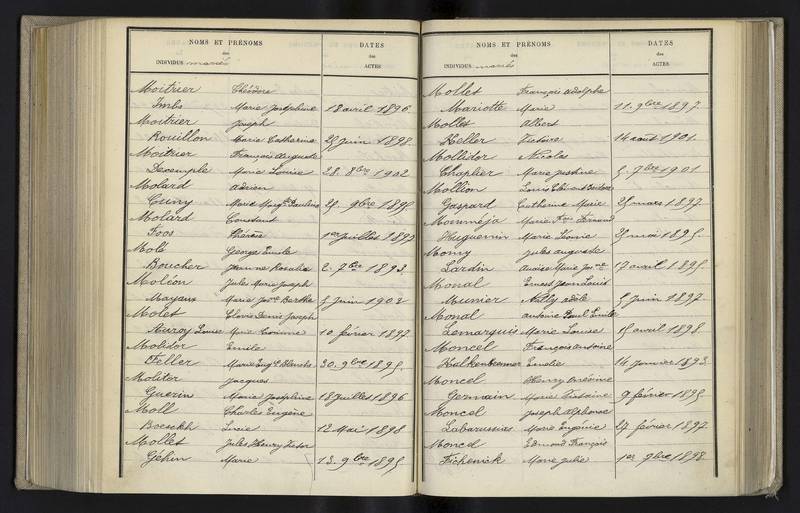 NOMS ET PRÉNOMS
des
INDIVIDUS mariés
DATES
des
ACTES
Moitrier Théodore
Imbs Marie Joséphine 18 avril 1896.
Moitrier Joseph
Rouillon Marie Catherine 25 juin 1898.
Moitrier François Auguste
Dexemple Marie Louise 28. 8bre 1902
Molard Adrien
Cuny Marie Marg. Pauline 25. 9bre 1895.
Molard Constant
Foos Thérèse 1er Juillet 1893
Molé George Emile
Boucher Jeanne Rosalie 2. 7bre 1893.
Moléon Jules Marie Joseph
Mayaux Marie Berthe 5 juin 1902
Molet Clovis Denis Joseph
Auroy Louise Marie 10 février 1897.
Molidor Emile
Feller Marie Eug. Blanche 30. 9bre 1895.
Moliter Jacques
Guerin Marie Joséphine 18 juillet 1896
Moll Charles Eugène
Boesckh Lucie 12 Mai 1898
Mollet Jules Henry Victor
Géhin Marie 13. 9bre 1895
NOMS ET PRÉNOMS
des
INDIVIDUS mariés
DATES
des
ACTES
Mollet François Adolphe
Mariotte Marie 11. 9bre 1897.
Mollet Albert
Keller Victoire 14 août 1901.
Mollidor Nicolas
Chaplier Marie Justine 5. 7bre 1901
Mollion Louis
Gaspard Catherine Marie 25 mars 1897
Momméja Marie Fernand
Huguenin Marie Léonie 25 mai 1895.
Momy Jules Auguste
Lardin Marie 17 avril 1895.
Monal Ernest Jean Louis
Munier Nelly Adèle 5 juin 1897.
Monal Antoine Paul Emile
Lemarquis Marie Louise 15 avril 1898.
Moncel François Antoine
Kalkenbrenner Emelie 14 janvier 1893.
Moncel Henry
Germain Marie Victoire 9 février 1895
Moncel Joseph Alphonse
Labarussias Marie Eugénie 27 février 1897.
Moncel Edmond François
Fichenick Marie Julie 1er 9bre 1898.